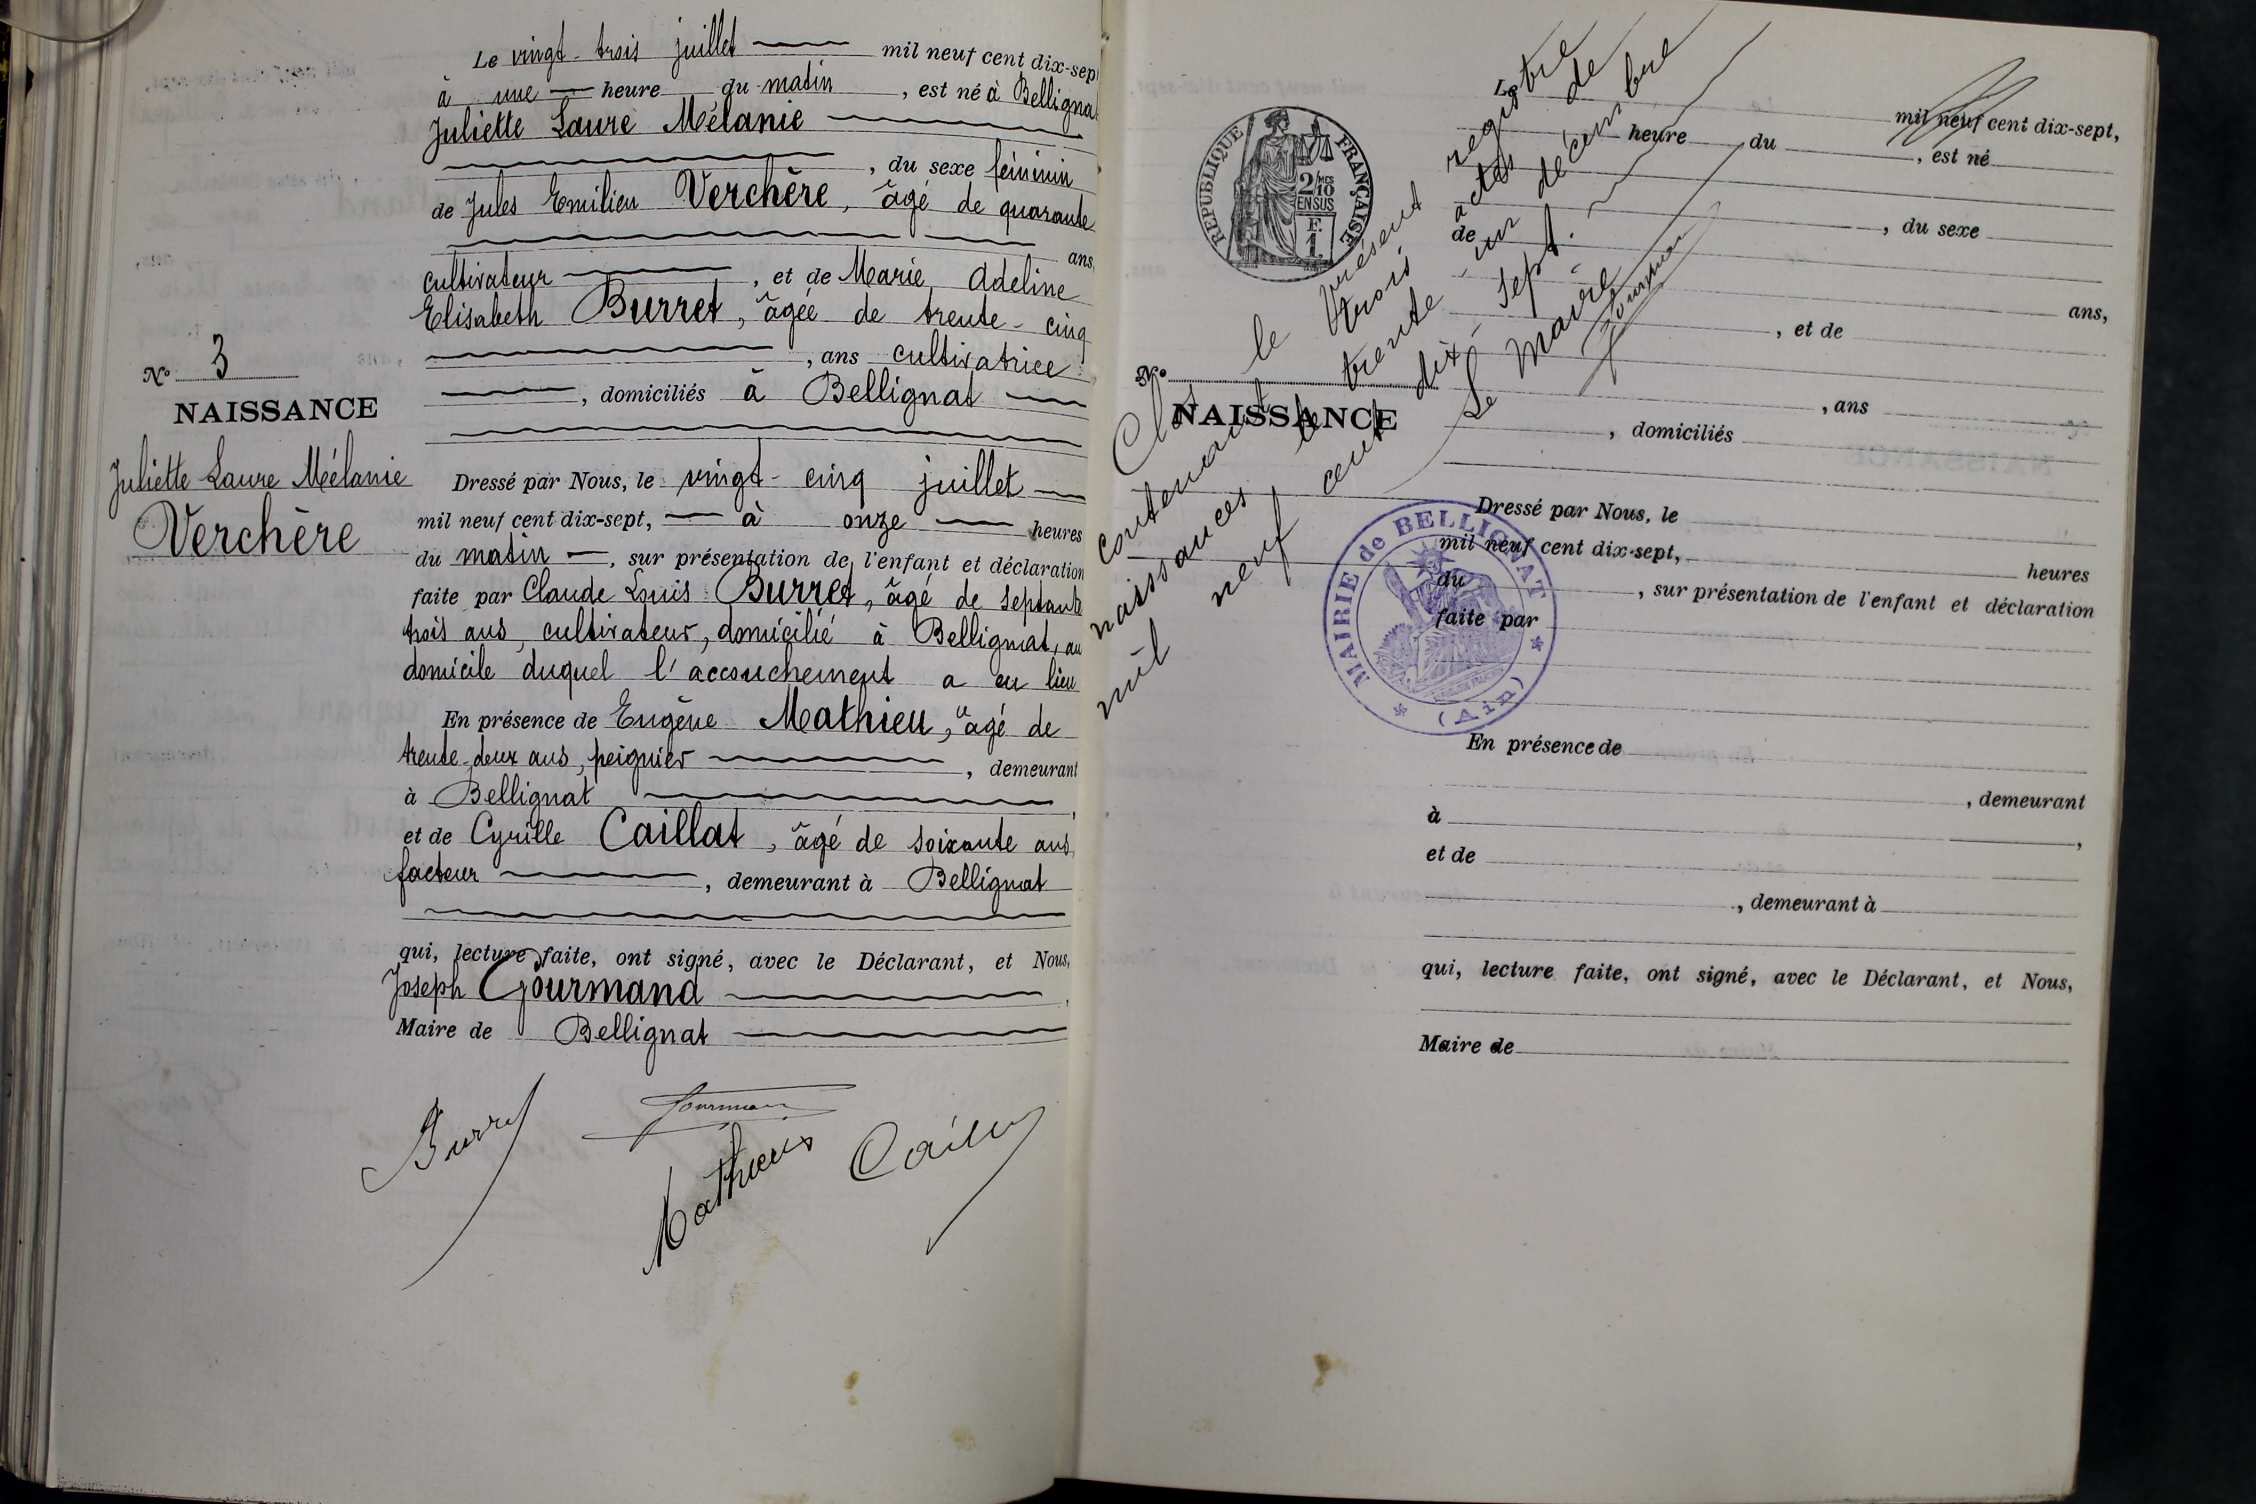 Le vingt-trois juillet mil neuf cent dix-sept
à une heure du matin, est né à Bellignat
Juliette Laure Mélanie
, du sexe féminin
de Jules Emilien Verchère, âgé de quarante
ans,
cultivateur, et de Marie Adeline
Elisabeth Burret, âgée de trente-cinq
, ans cultivatrice
, domiciliés à Bellignat
N° 3
NAISSANCE
Juliette Laure Mélanie
Verchère
Dressé par Nous, le vingt-cinq juillet
mil neuf cent dix-sept, à onze heures
du matin, sur présentation de l'enfant et déclaration
faite par Claude Louis Burret, âgé de septante
trois ans, cultivateur, domicilié à Bellignat, au
domicile duquel l'accouchement a eu lieu
En présence de Eugène Mathieu, âgé de
trente-deux ans, peignier, demeurant
à Bellignat,
et de Cyrille Caillat, âgé de soixante ans
facteur, demeurant à Bellignat
qui, lecture faite, ont signé, avec le Déclarant, et Nous,
Joseph Gourmand,
Maire de Bellignat
Burret
Gourmand
Mathieu
Caillat
REPUBLIQUE FRANÇAISE
2/10 MES
EN SUS
F.
1.
Clos le présent registre
contenant trois actes de
naissances le trente-un décembre
mil neuf cent dix-sept.
Le Maire
Gourmand
MAIRIE de BELLIGNAT
* (Ain) *
N°
NAISSANCE
Le mil neuf cent dix-sept,
heure du, est né
, du sexe
de
ans,
, et de
, ans
, domiciliés
Dressé par Nous, le
mil neuf cent dix-sept, heures
du, sur présentation de l'enfant et déclaration
faite par
En présence de
, demeurant
à,
et de
, demeurant à
qui, lecture faite, ont signé, avec le Déclarant, et Nous,
Maire de